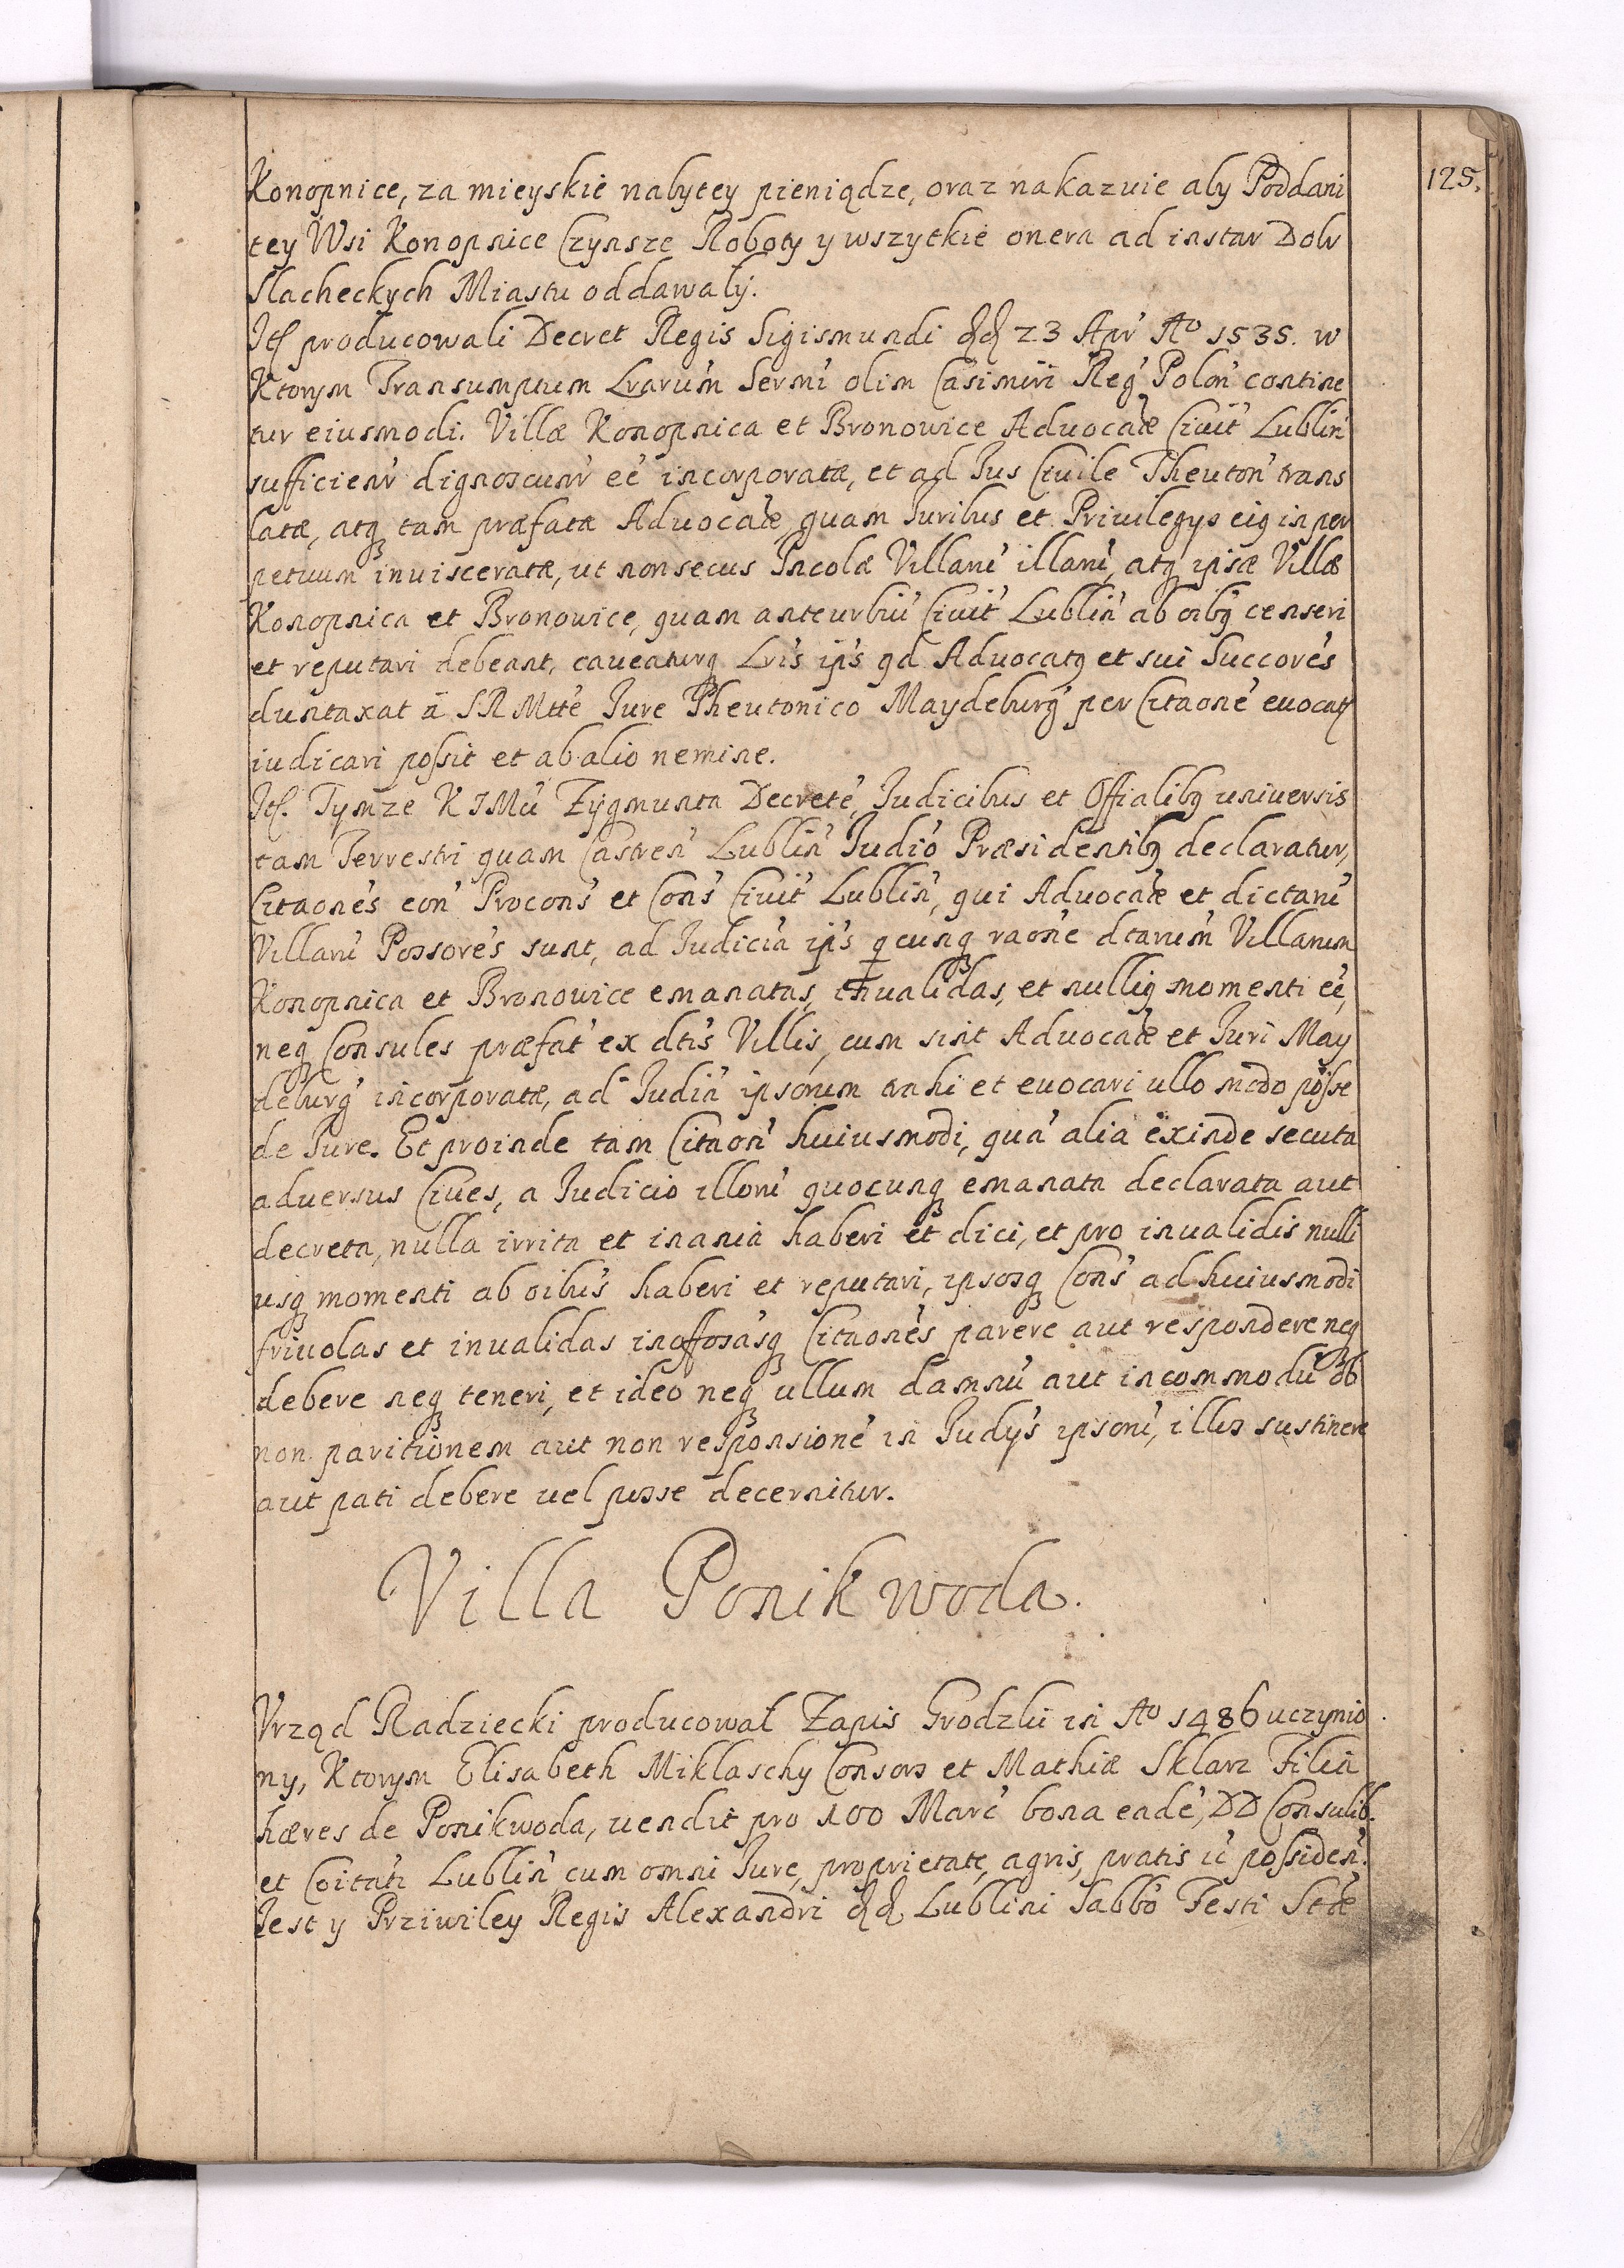 125.
Konopnice, za mieyskie nabytey pieniądze, oraz nakazuie aby Poddani
tey Wsi Konopnice Czynsze Roboty y wszytkie onera ad instar Dobr
Slacheckych Miastu oddawały.
producowali Decret Regis Sigismundi dd 23 Apr Ao 1535. w
Ktorym Transumptum Lrarum Sermi olim Casimiri Reg Polon contine
tur eiusmodi. Villæ Konopnica et Bronowice Aduocatæ Ciuit Lublin
sufficienr dignoscunr eē incorporatæ, et ad Jus Ciuile Theuton trans
latæ, atq tam præfatæ Aduocatæ, quam Juribus et Priuilegys eiq in per
petuum inuisceratæ, ut non secus Incolæ Villaru illaru, atq ipsæ Villæ
Konopnica et Bronowice, quam anteurbiu Ciuit Lublin ab oibq censeri
et reputari debeant, caueaturq Lris ijs qd Aduocatq et sui Succores
duntaxat a SRMtte Jure Theutonico Maydeburg per Citaone euocatq
iudicari possit et ab alio nemine.
Tymze KJMci Zygmunta Decrete, Judicibus et Offialibq uniuersis
tam Terrestri quam Castren Lublin Judio Præsidentibq declaratur,
Citaones con Procons et Cons Ciuit Lublin, qui Aduocatæ et dictaru
Villaru Possores sunt, ad Judicia ijs qcunq raone dtarum Villarum
Konopnica et Bronowice emanatas, inualidas, et nulliq momenti eē,
neq Consules præfat ex dtis Villis, cum sint Aduocatæ et Juri May
deburg incorporatæ, ad Judia ipsorum trahi et euocari ullo modo posse
de Jure. Et proinde tam Citaon huiusmodi, qua alia exinde secuta
aduersus Ciues, a Judicio illoru quocunq emanata declarata aut
decreta, nulla irrita et inania haberi et dici, et pro inualidis nulli
usq momenti ab oibus haberi et reputari, ipsosq Cons ad huiusmodi
friuolas et inualidas inofforasq Citaones parere aut respondere neq
debere neq teneri, et ideo neq ullum damnu aut incommodu ob
non paritionem aut non responsione in Judys ipsoru, illos sustinere
aut pati debere uel posse decernitur.
Villa Ponikwoda.
Vrząd Radziecki producował Zapis Grodzki in Ao 1486 uczynio
ny, Ktorym Elisabeth Miklaschy Consors et Mathiæ Sklarz Filia
hæres de Ponikwoda, uendit pro 100 Marc bona eade, DD Consulib.
et Coitati Lublin cum omni Jure, proprietate, agris, pratis ic possiden.
Jest y Prziwiley Regis Alexandri dd Lublini Sabbo Festi Stæ